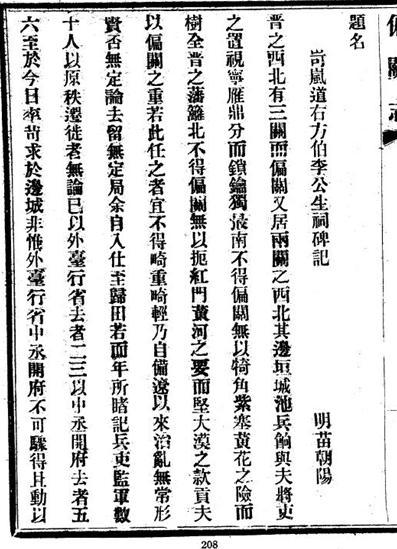 偏關志
題名
岢嵐道右方伯李公生祠碑記
明苗朝陽
晋之西北有三關而偏關又居兩關之西北其邊垣城池兵餉與夫將吏
之置視寧雁鼎分而鎖鑰獨最南不得偏關無以犄角紫寨黃花之險而
樹全晋之藩籬北不得偏關無以扼紅門黃河之要而堅大漠之款貢夫
以偏關之重若此任之者宜不得畸重畸輕乃自備遼以來治亂無常形
賢否無定論去留無定局余自入仕至歸田若而年所睹記兵吏監軍數
十人以原秩遷徙者無論已以外臺行省去者二三以中丞開府去者五
六至於今日率苛求於邊城非惟外臺行省中丞開府不可驟得且動以
208